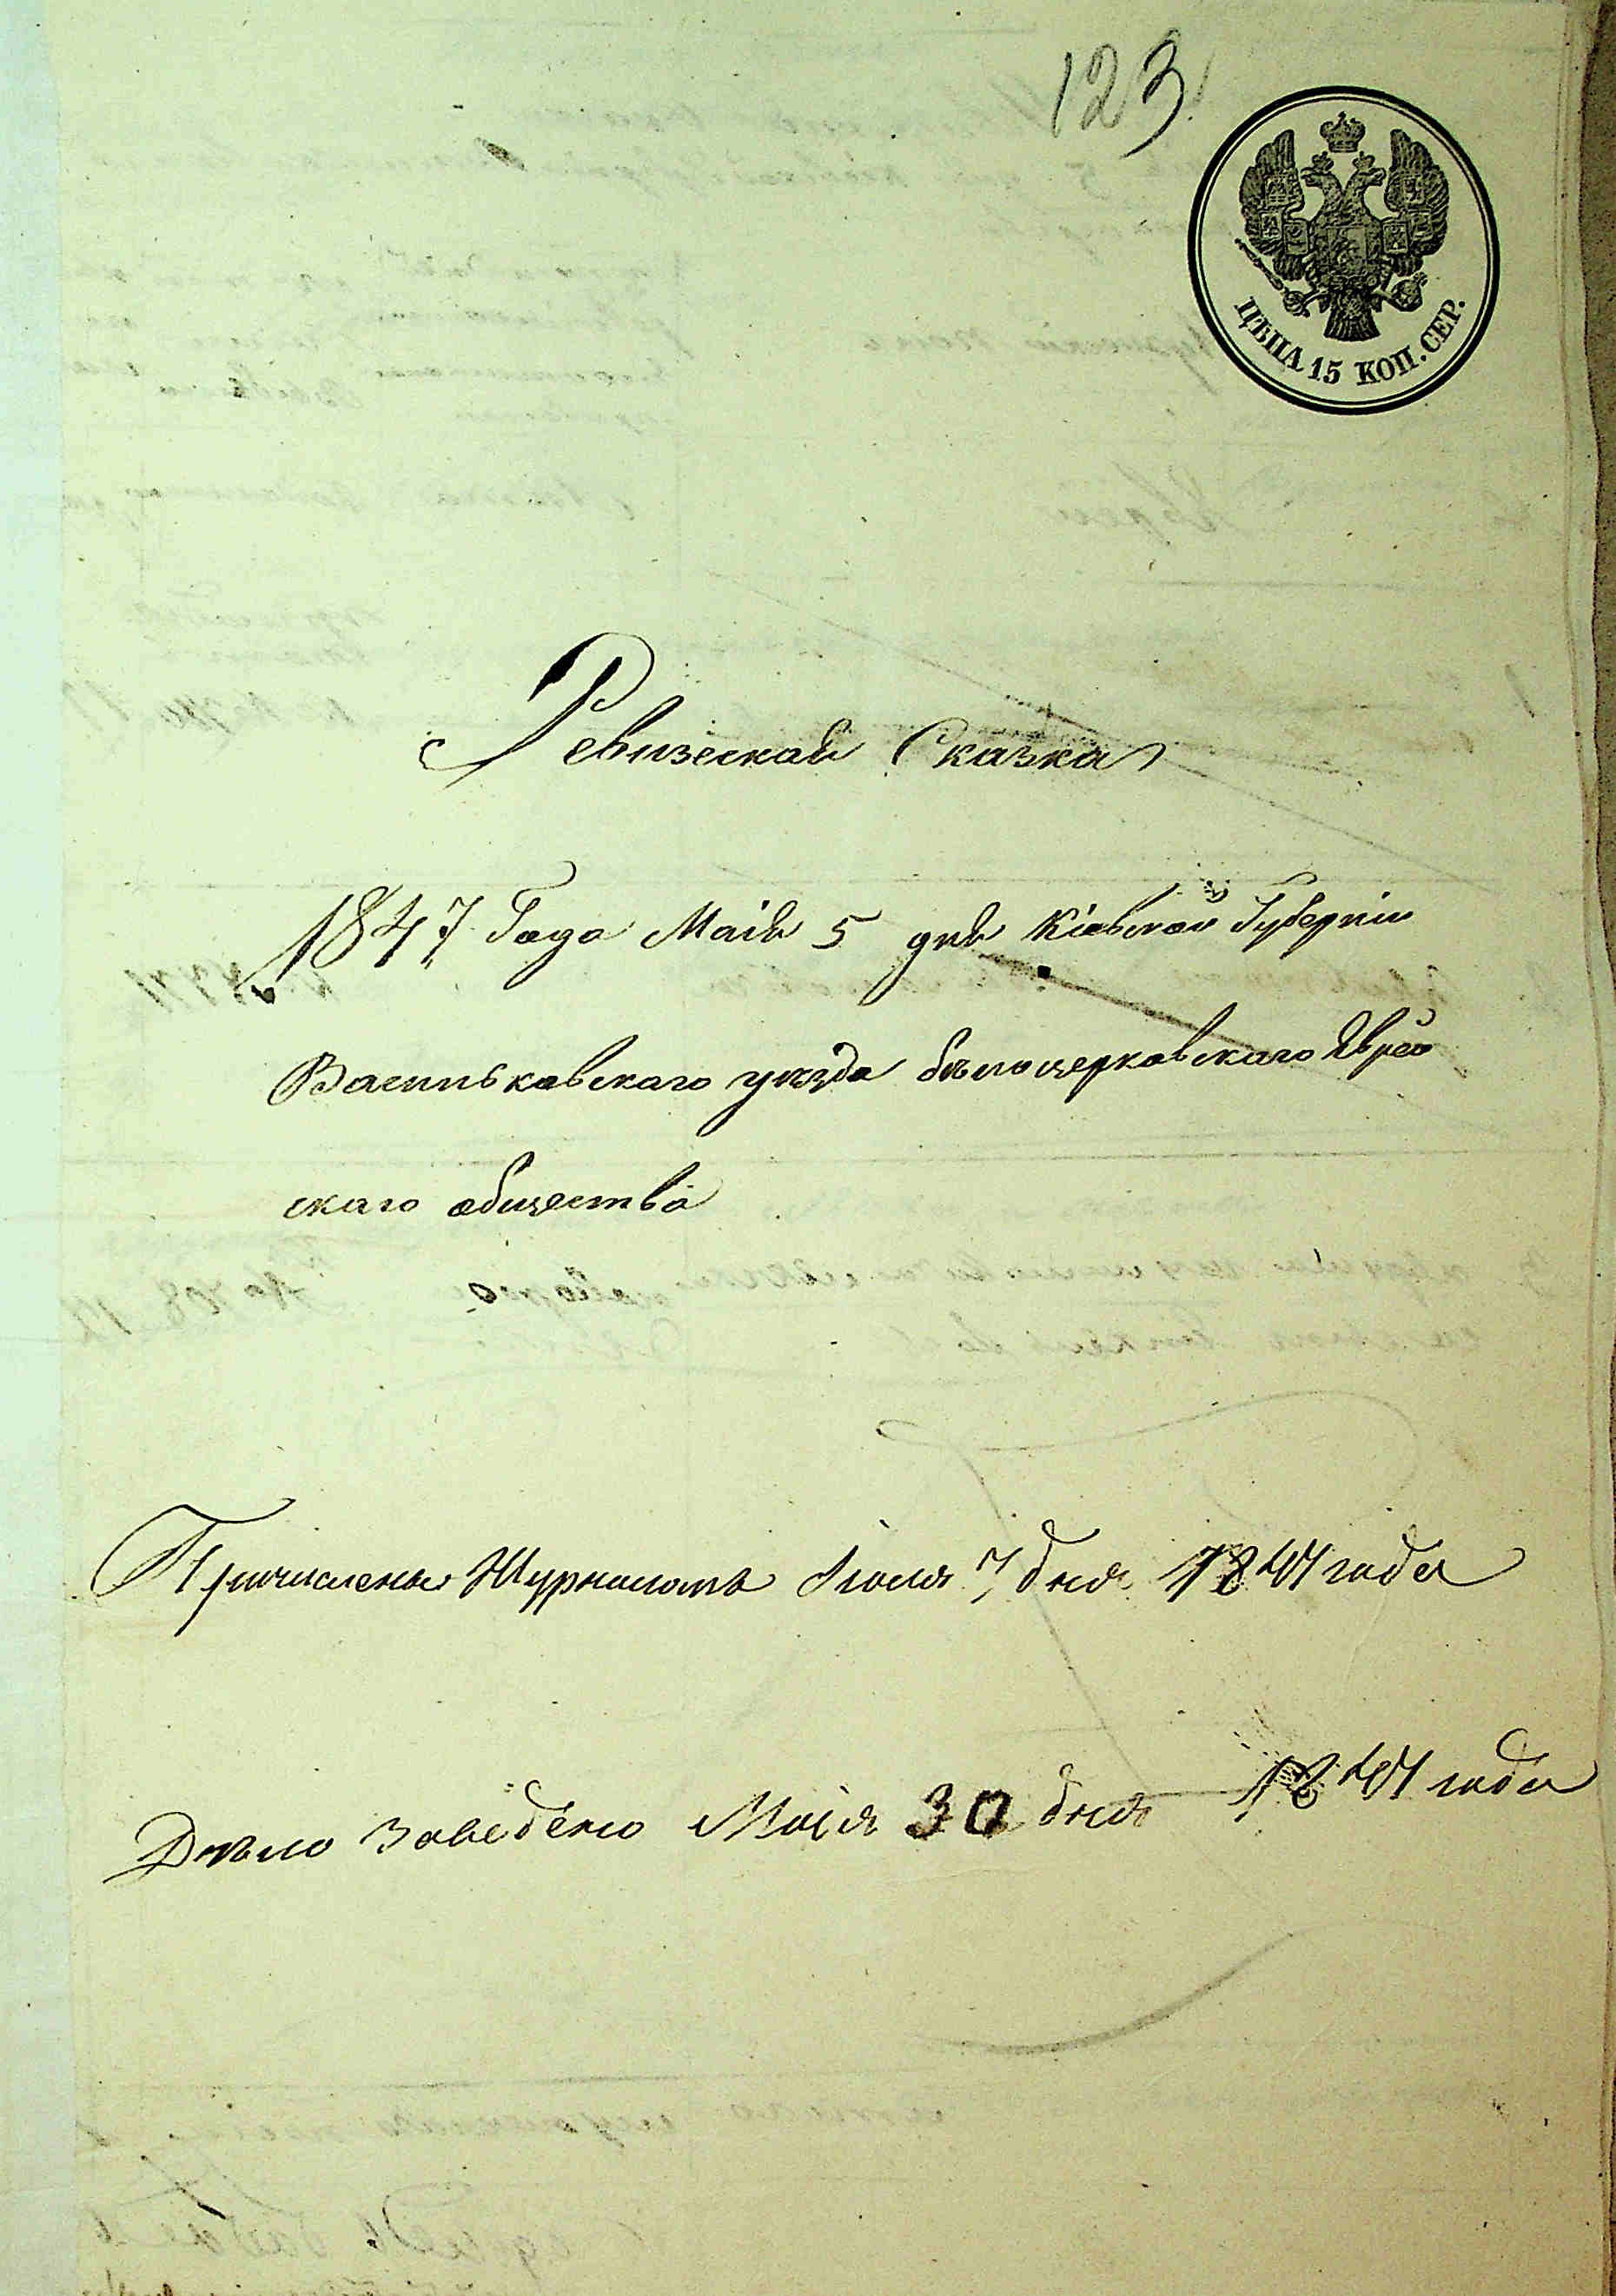 123
ЦѢНА 15 КОП. СЕР.
Ревизская Сказка
1847 Года Маія 5 дня Кіевской Губерніи
Васильковскаго уезда белоцерковскаго Еврей
скаго общества
Причислены Журналомъ Іюля 7 дня 1847 года
Дѣло заведено Маія 30 дня 1847 года